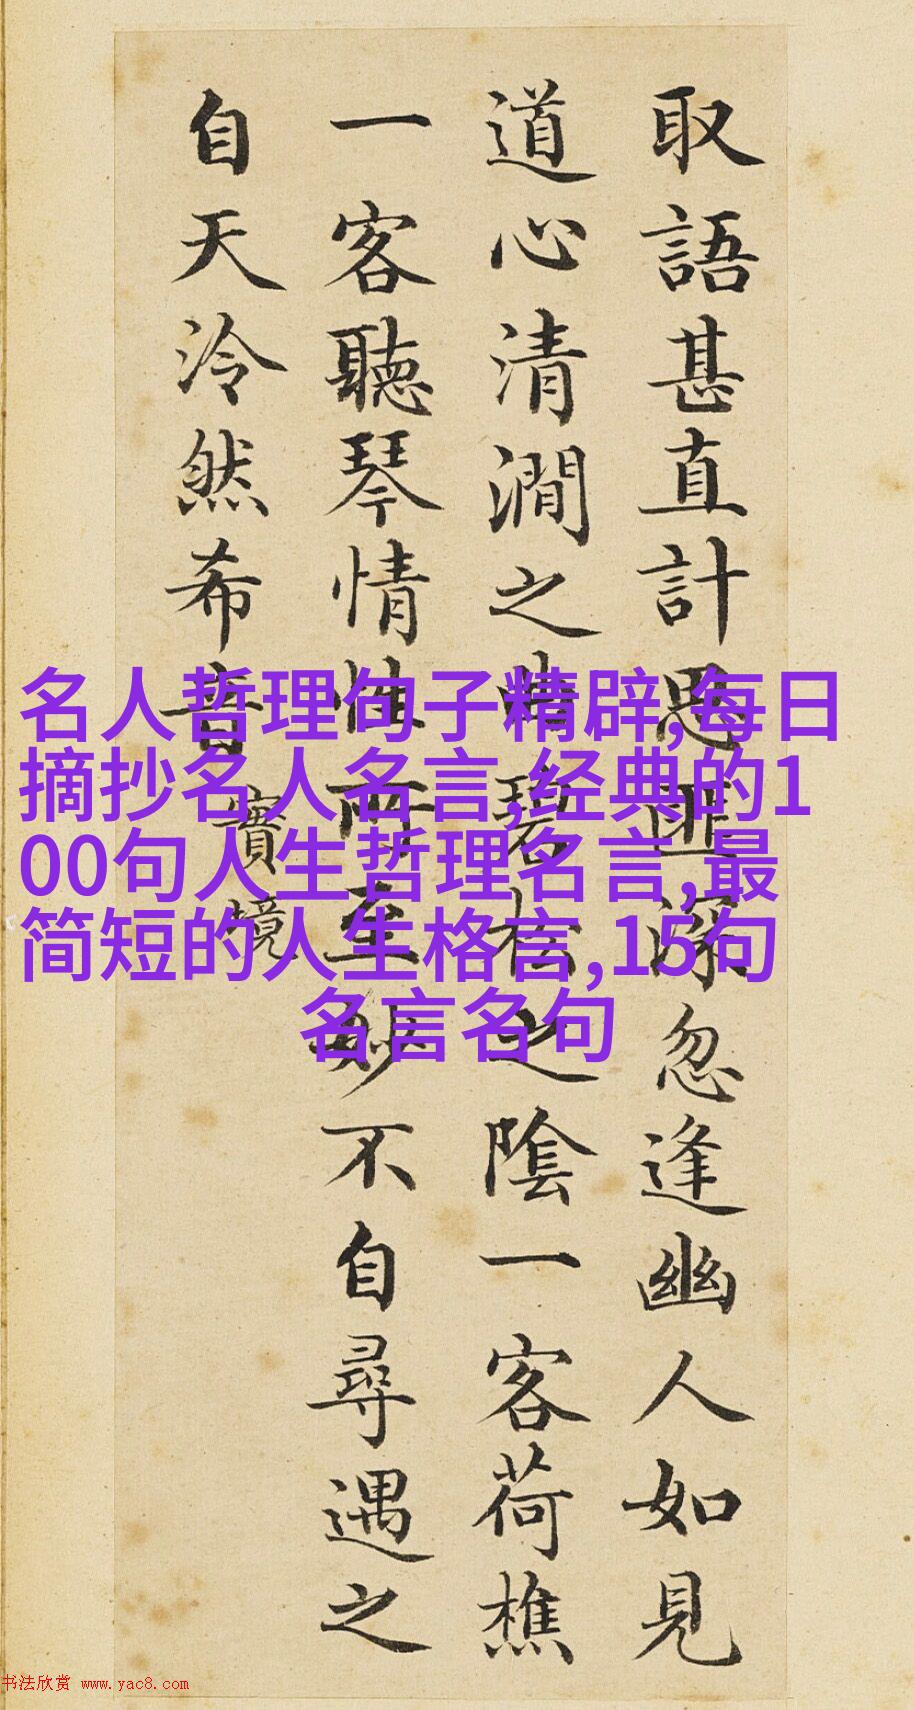 取語甚直計思匪深忽逢幽人如見
道心清澗之碧松之陰一客荷樵
一客聽琴情性所至妙不自尋遇之
自天泠然希音 實境
名人哲理句子精辟,每日
摘抄名人名言,经典的1
00句人生哲理名言,最
简短的人生格言,15句
名言名句
书法欣赏 www.yac8.com